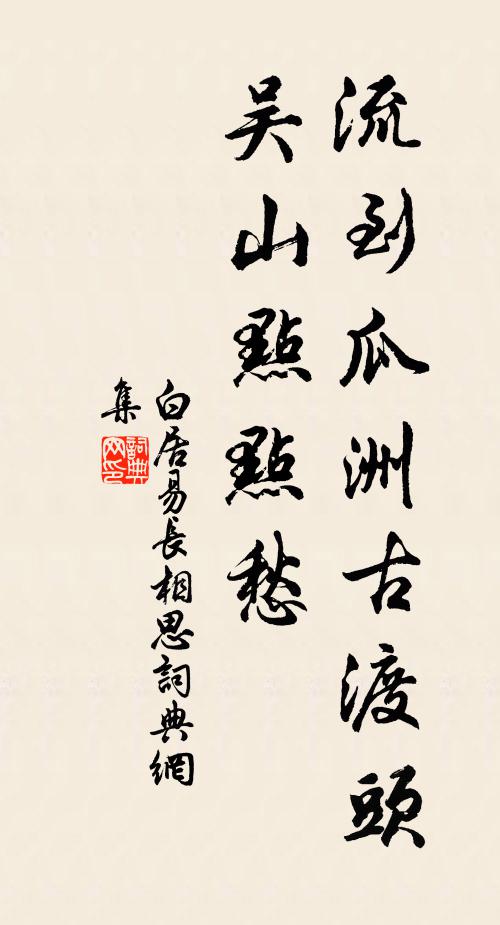 流到瓜洲古渡頭
吳山點點愁
白居易長相思詞典網
集
詞典網印